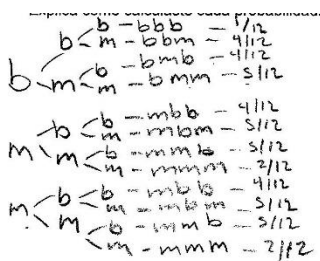 Explica cómo calculaste cada probabilidad.
b - bbb - 1/12
b m - bbm - 4/12
b - bmb - 4/12
b m m - bmm - 5/12
b - mbb - 4/12
b m - mbm - 5/12
m m b - mmb - 5/12
m - mmm - 2/12
b b - mbb - 4/12
m m - mbm - 5/12
m b - mmb - 5/12
m - mmm - 2/12